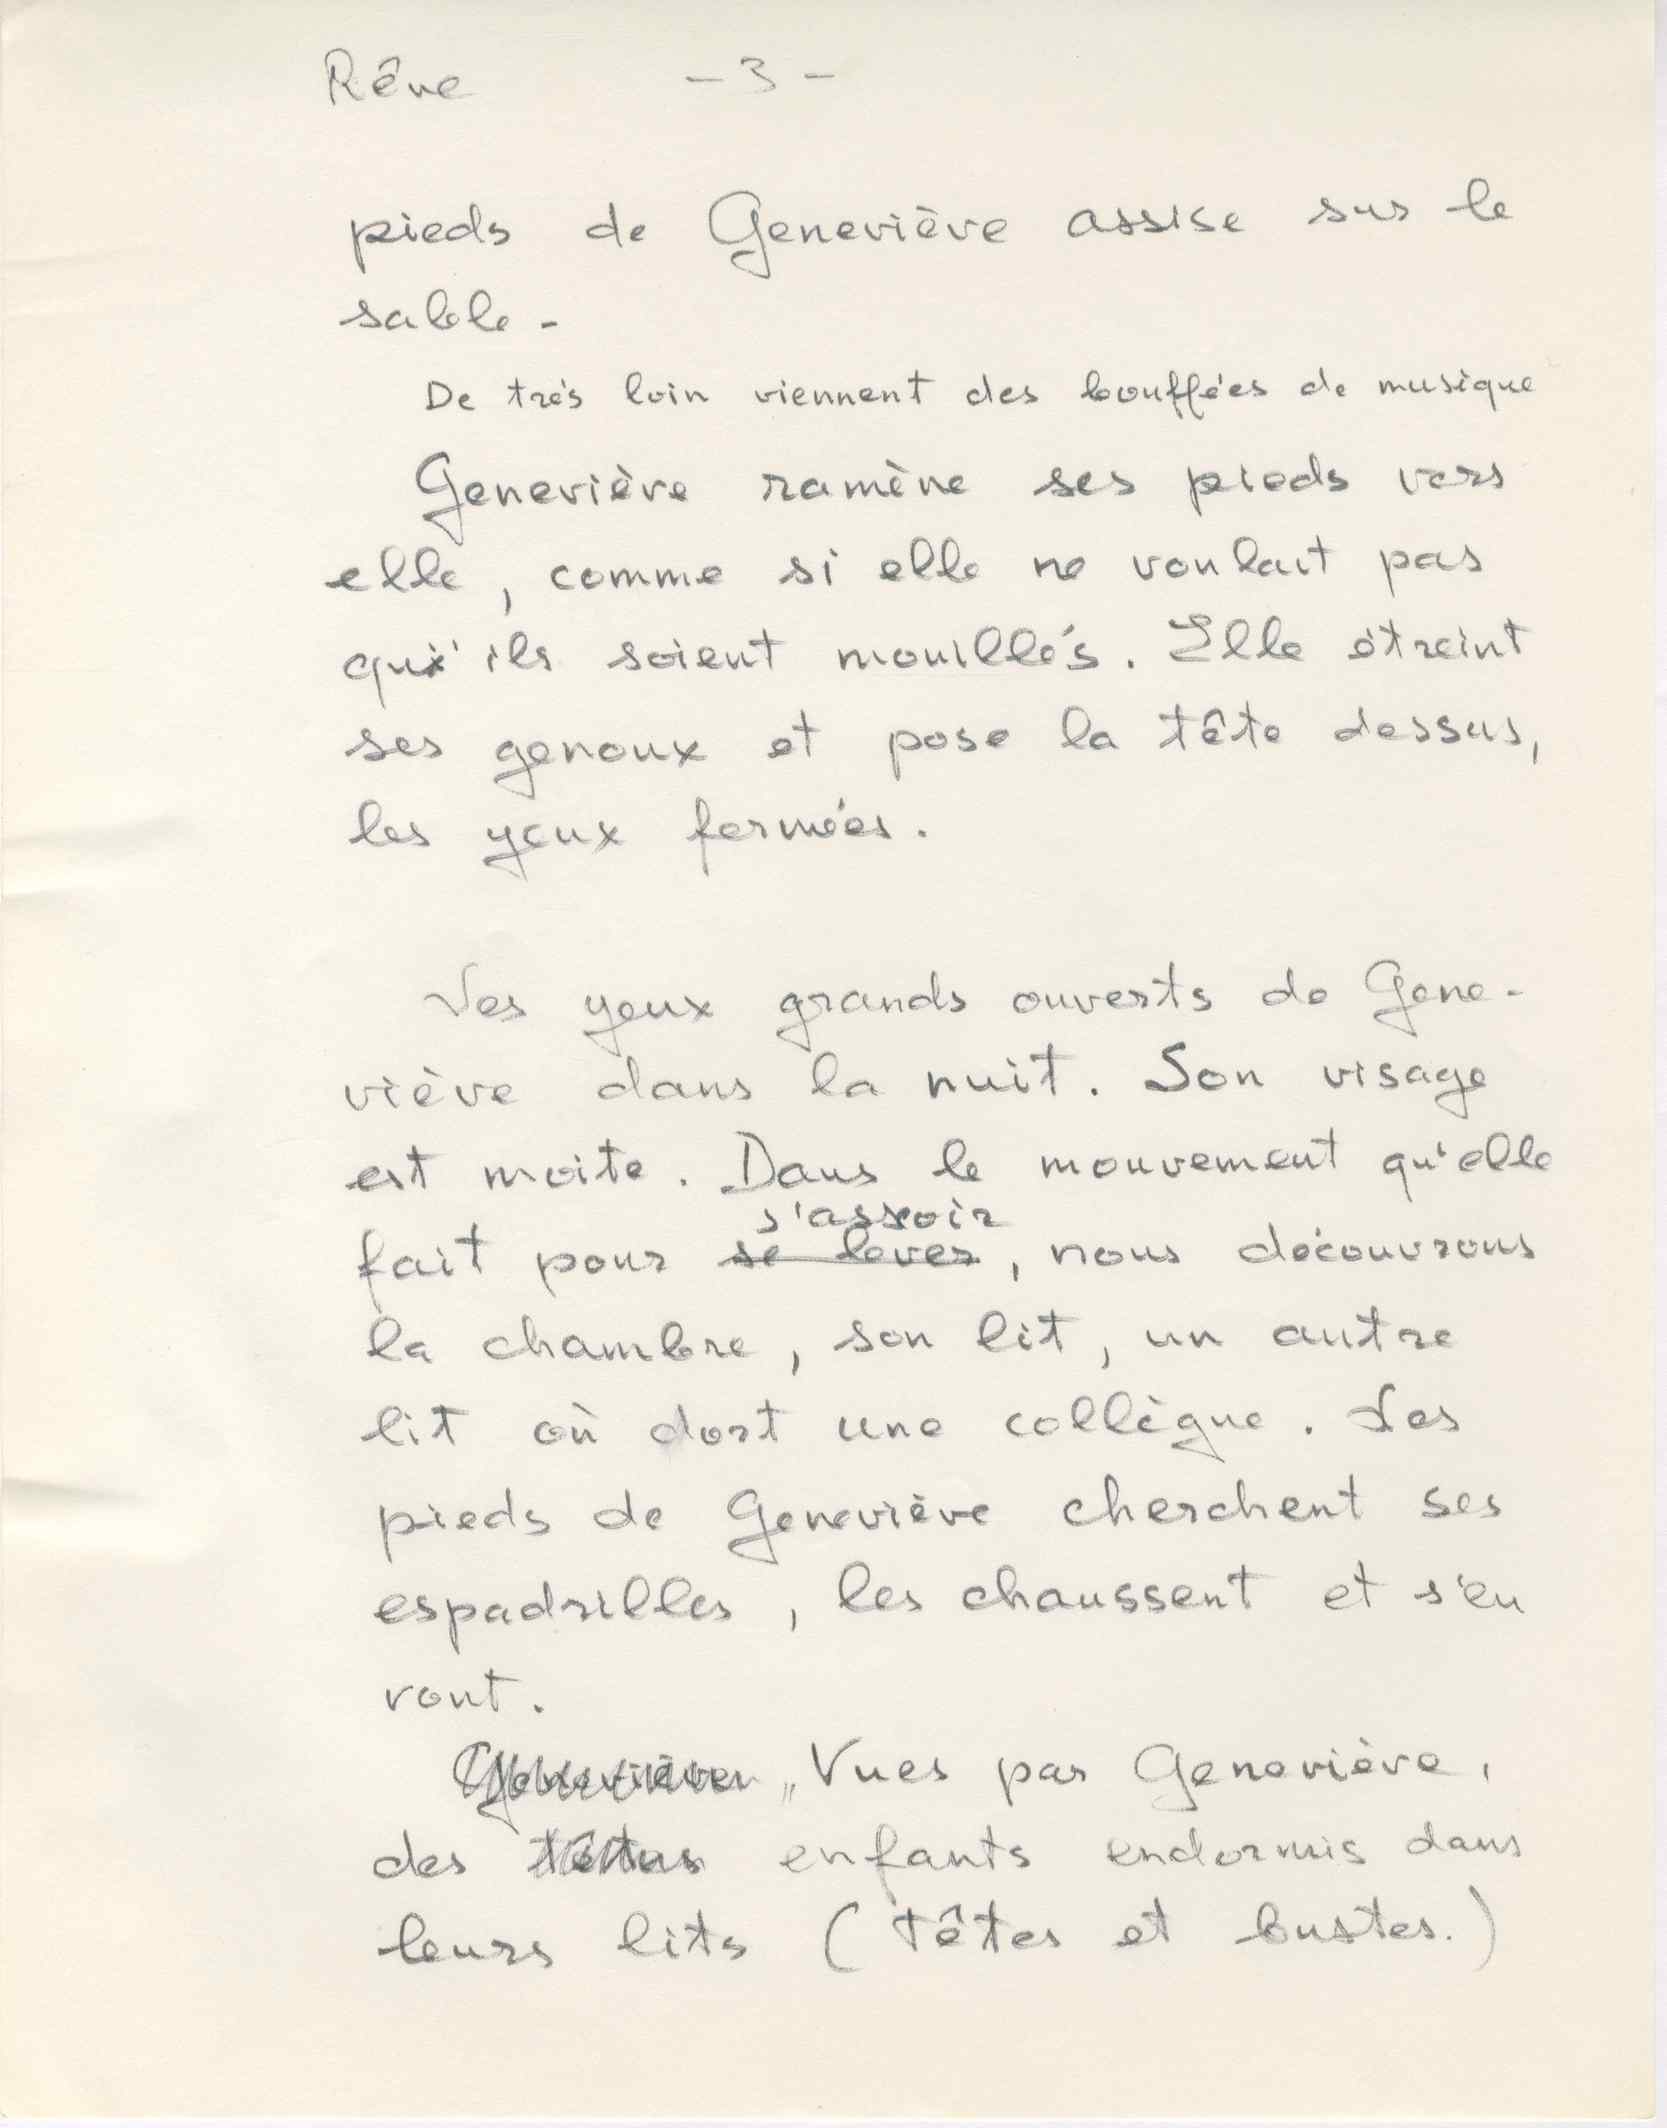 Rêve - 3 -
pieds de Geneviève assise sur le
sable -
De très loin viennent des bouffées de musique
Geneviève ramène ses pieds vers
elle, comme si elle ne voulait pas
qu'ils soient mouillés. Elle étreint
ses genoux et pose la tête dessus,
les yeux fermés.
Les yeux grands ouverts de Gene-
viève dans la nuit. Son visage
est moite. Dans le mouvement qu'elle
s'asseoir
fait pour se lever, nous découvrons
la chambre, son lit, un autre
lit où dort une collègue. Les
pieds de Geneviève cherchent ses
espadrilles, les chaussent et s'en
vont.
Geneviève Vues par Geneviève,
des têtes enfants endormis dans
leurs lits (têtes et bustes.)